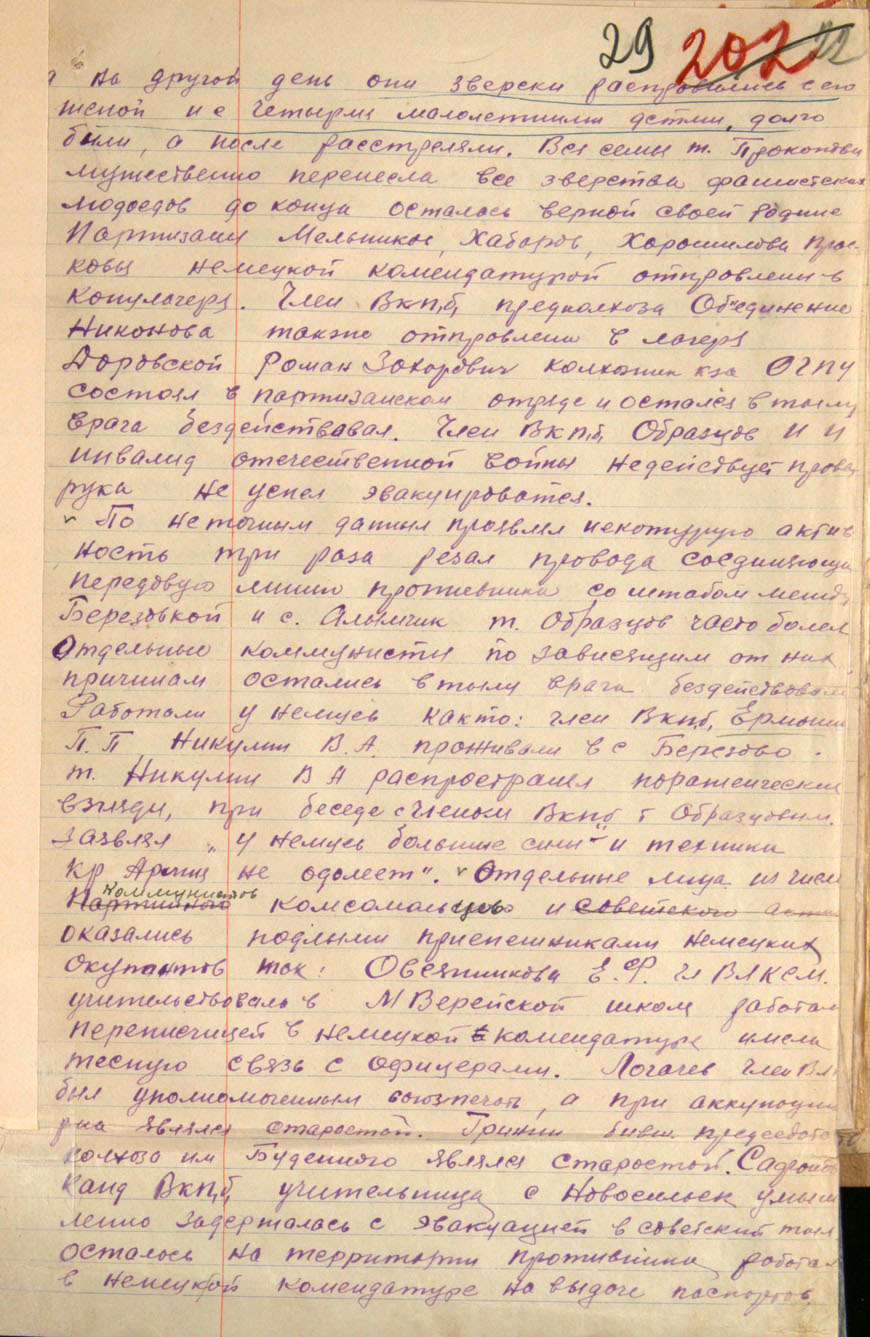 29 202 22
На другой день они зверски расправились с его
женой и с четырмя малолетними детми, долго
били, а после расстреляли. Вся семья т. Прокопови
мужественно перенесла все зверства фашистских
людоедов до конца осталось верной своей родине
Партизаны Мельников, Хабаров, Хорошилова Прос-
ковья немецкой комендатурой отправлены в
концлагеря. Член Вкп,б, предколхоза Об"единение
Никонова также отправлена в лагеря
Доровской Роман Захорович колхозник кза ОГПУ
состоял в партизанском отряде и остался в тылу
врага бездействавал. Член Вкп,б, Образцов И И
инвалид отечественной войны недействует права
рука не успел эвакуироватся.
По неточным данным проявлял некотурую актив
ность три раза резал провода соединяющи
передовую линию противника со штабом между
Березовкой и с. Алымчик т. Образцов часто болел
Отдельные коммунисты по зависящим от них
причинам остались в тылу врага бездействовали
Работали у немцев както: член Вкп,б, Ермошин
П. П Никулин В. А. проживали в с Березово.
т. Никулин В А распространял пораженческие
взгляды, при беседе с членом Вкп,б т Образцовым
заявлял „у немцев большие силы" и техники
Кр Армия не одолеет". Отдельные лица из числа
коммунистов
Партийного комсомольцев и советского актива
оказались подлыми приспешниками немецких
окупантов так: Овсянникова Е. Ф. чл ВЛКСМ.
учительствовала в МВерейской школе работала
переписчицей в немецкой комендатуре имела
тесную связь с офицерами. Логачев член ВЛ
был уполномоченным союзпечать, а при аккупации
рна являлся старостой. Гринин бывш. председате
колхоза им Буденного являлся старостой. Сафонова
Канд Вкп,б, учительница с Новосильск умыш
ленно задержалась с эвакуацией в советский тыл
осталось на территории противника работала
в немецкой комендатуре на выдаче паспортов,